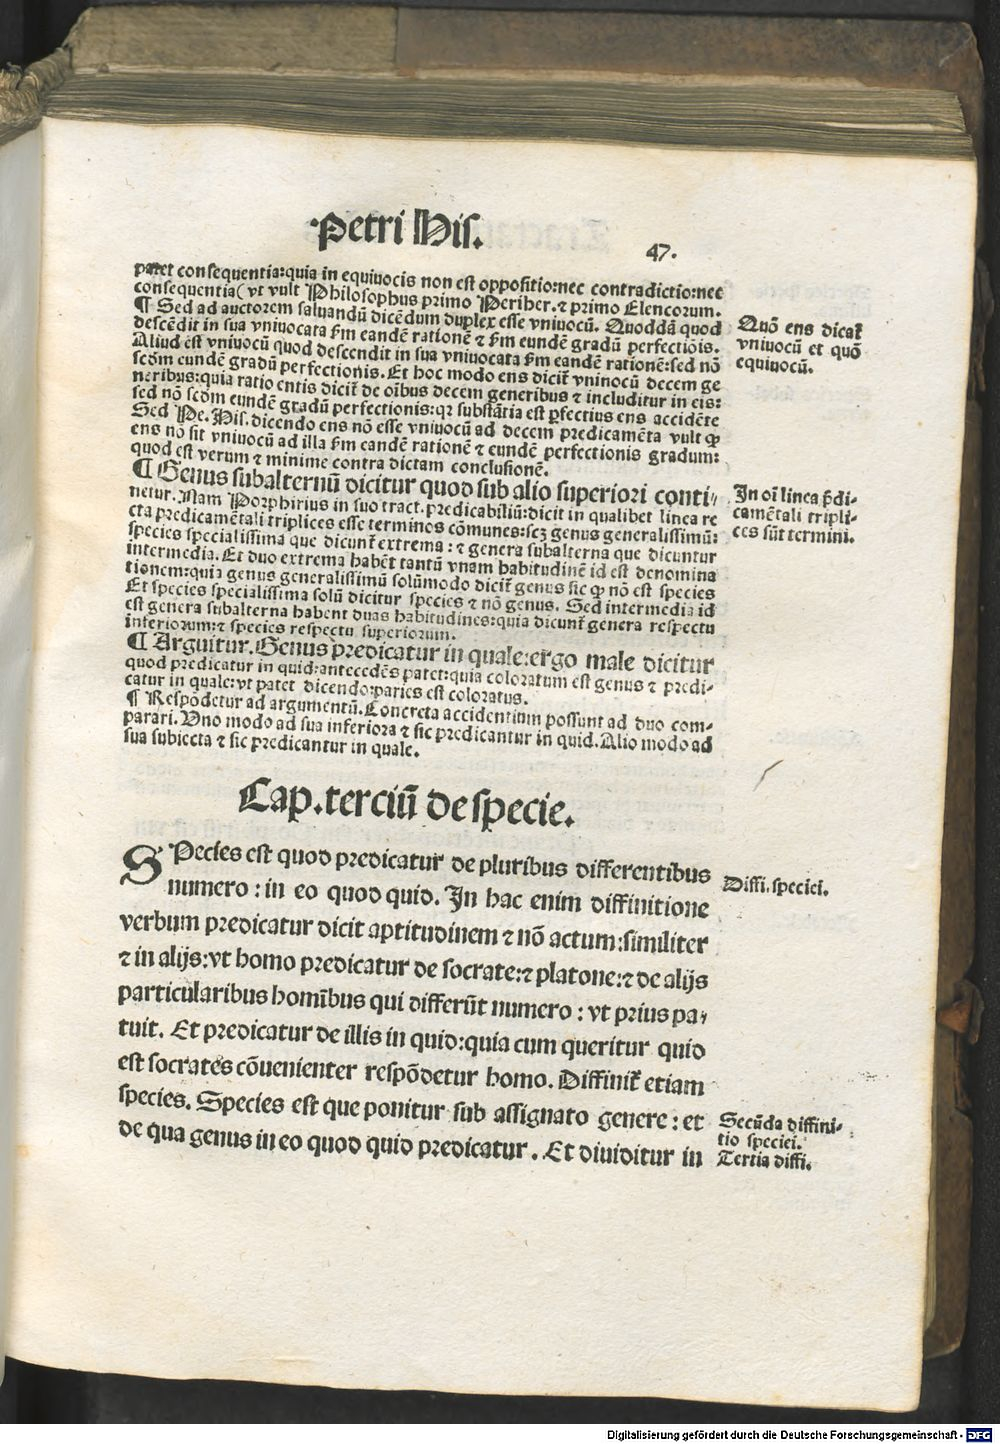 Petri His.
47.
patet consequentia:quia in equiuocis non est oppositio:nec contradictio:nec
consequentia( vt vult Philosophus primo Periher. ⁊ primo Elencorum.
¶ Sed ad auctorem saluandū dicēdum duplex esse vniuocū. Quoddā quod
descēdit in sua vniuocata ẜm eandē rationē ⁊ ẜm eundē gradū perfectiōis.
Aliud est vniuocū quod descendit in sua vniuocata ẜm eandē rationē:sed nō
scdm eundē gradū perfectionis. Et hoc modo ens dicit᷑ vninocū decem ge
neribus:quia ratio entis dicit᷑ de oībus decem generibus ⁊ includitur in eis:
sed nō scdm eundē gradū perfectionis:qꝛ substātia est ꝑfectius ens accidēte
Sed Pe. His. dicendo ens nō esse vniuocū ad decem predicamēta vult ꝙ
ens nō sit vniuocū ad illa ẜm eandē rationē ⁊ eundē perfectionis gradum:
quod est verum ⁊ minime contra dictam conclusionē.
Quō ens dicat᷑
vniuocū et quō
equiuocū.
¶ Genus subalternū dicitur quod sub alio superiori conti⸗
netur. Nam Porphirius in suo tract. predicabiliū:dicit in qualibet linea re
cta predicamētali triplices esse terminos cōmunes:scꝫ genus generalissimū:
species specialissima que dicunt᷑ extrema: ⁊ genera subalterna que dicuntur
intermedia. Et duo extrema habēt tantū vnam habitudinē id est denomina
tionem:quia genus generalissimū solūmodo dicit᷑ genus sic ꝙ nō est species
Et species specialissima solū dicitur species ⁊ nō genus. Sed intermedia id
est genera subalterna habent duas habitudines:quia dicunt᷑ genera respectu
inferiorum:⁊ species respectu superiorum.
In oī linea p̄di⸗
camētali tripli⸗
ces sūt termini.
¶ Arguitur. Genus predicatur in quale:ergo male dicitur
quod predicatur in quid:antecedēs patet:quia coloratum est genus ⁊ predi⸗
catur in quale:vt patet dicendo:paries est coloratus.
¶ Respōdetur ad argumentū. Concreta accidentium possunt ad duo com⸗
parari. Uno modo ad sua inferiora ⁊ sic predicantur in quid. Alio modo ad
sua subiecta ⁊ sic predicantur in quale.
Cap. terciū de specie.
SPecies est quod predicatur de pluribus differentibus
numero : in eo quod quid. In hac enim diffinitione
verbum predicatur dicit aptitudinem ⁊ nō actum:similiter
⁊ in alijs:vt homo predicatur de socrate:⁊ platone:⁊ de alijs
particularibus homībus qui differūt numero : vt prius pa⸗
tuit. Et predicatur de illis in quid:quia cum queritur quid
est socrates cōuenienter respōdetur homo. Diffinit᷑ etiam
species. Species est que ponitur sub assignato genere : et
de qua genus in eo quod quid predicatur . Et diuiditur in
Diffi. speciei.
Secūda diffini⸗
tio speciei.
Tertia diffi.
Digitalisierung gefördert durch die Deutsche Forschungsgemeinschaft - DFG